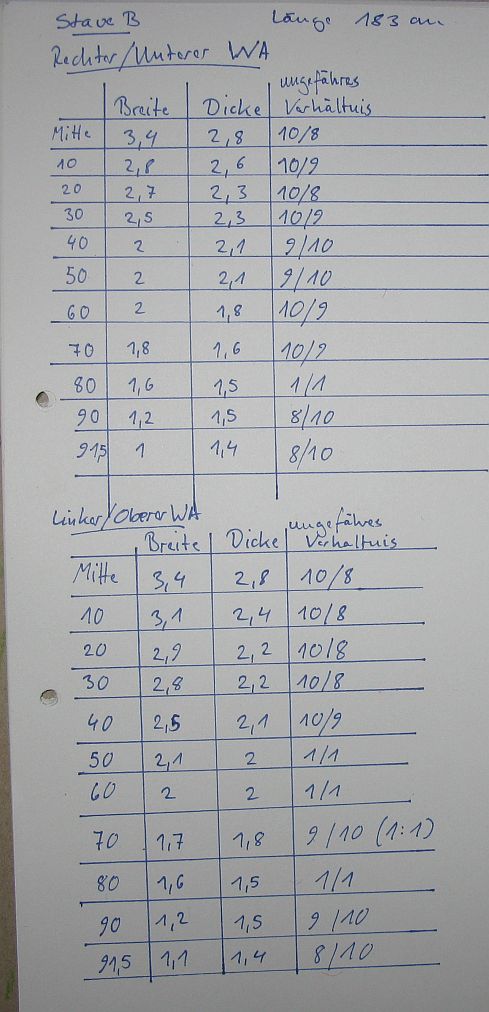 Stave B Länge 183 cm
Rechter/Unterer WA
ungefähres
Breite Dicke Verhältnis
Mitte 3,4 2,8 10/8
10 2,8 2,6 10/9
20 2,7 2,3 10/8
30 2,5 2,3 10/9
40 2 2,1 9/10
50 2 2,1 9/10
60 2 1,8 10/9
70 1,8 1,6 10/9
80 1,6 1,5 1/1
90 1,2 1,5 8/10
91,5 1 1,4 8/10
Linker/Oberer WA ungefähres
Breite Dicke Verhältnis
Mitte 3,4 2,8 10/8
10 3,1 2,4 10/8
20 2,9 2,2 10/8
30 2,8 2,2 10/8
40 2,5 2,1 10/9
50 2,1 2 1/1
60 2 2 1/1
70 1,7 1,8 9/10 (1:1)
80 1,6 1,5 1/1
90 1,2 1,5 9/10
91,5 1,1 1,4 8/10